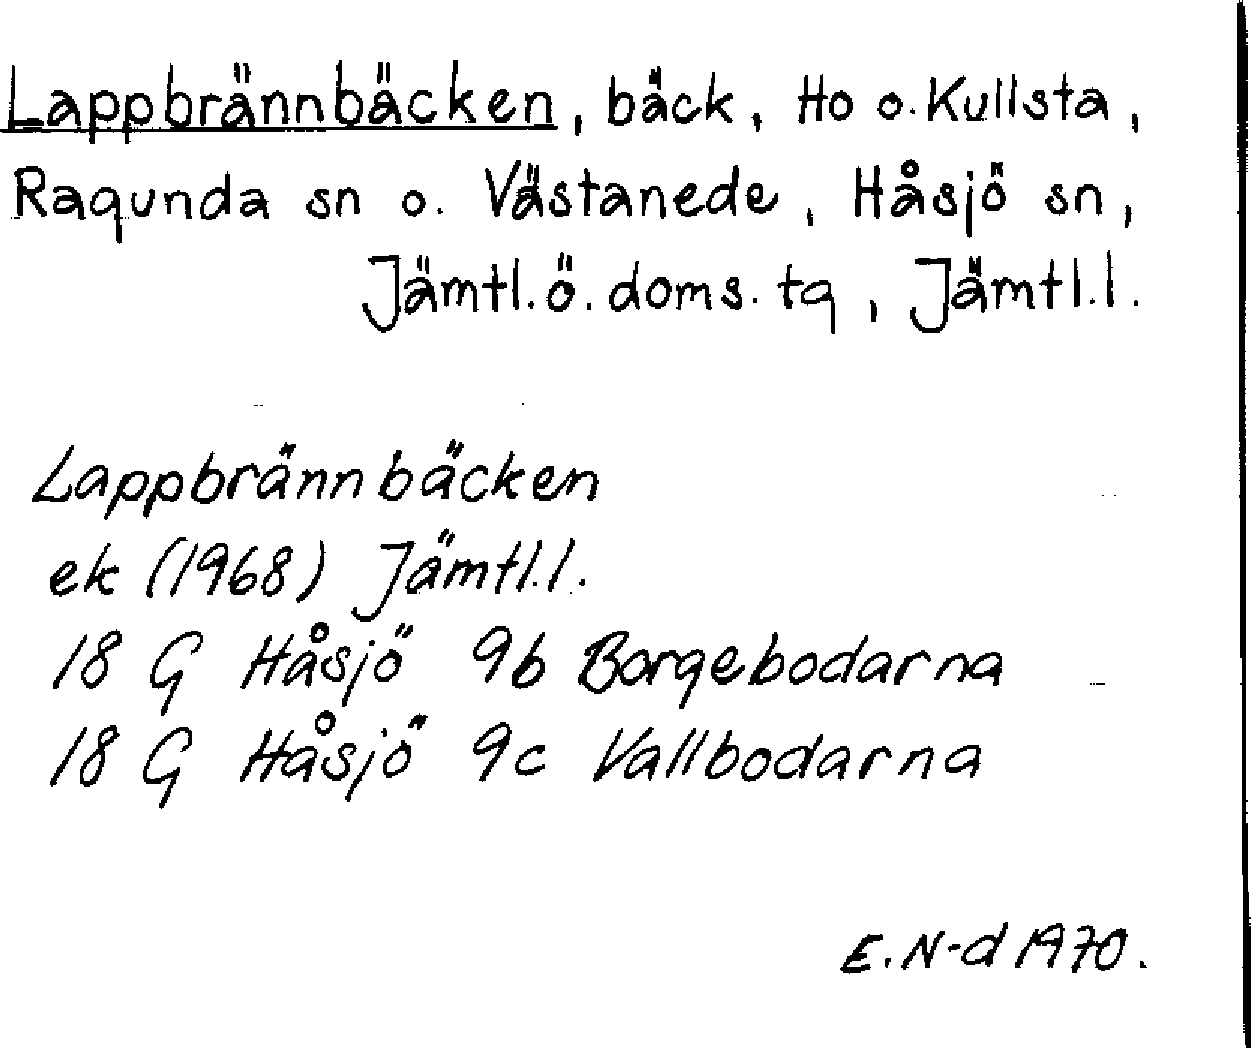 Lappbrännbäcken, bäck, Ho o. Kullsta,
Ragunda sn o. Västanede, Håsjö sn,
Jämtl. ö. doms. tg, Jämtl. l.
Lappbrännbäcken
ek (1968) Jämtl. l.
18 G Håsjö 9b Borgebodarna
18 G Håsjö 9c Vallbodarna
E. N-d 1970.